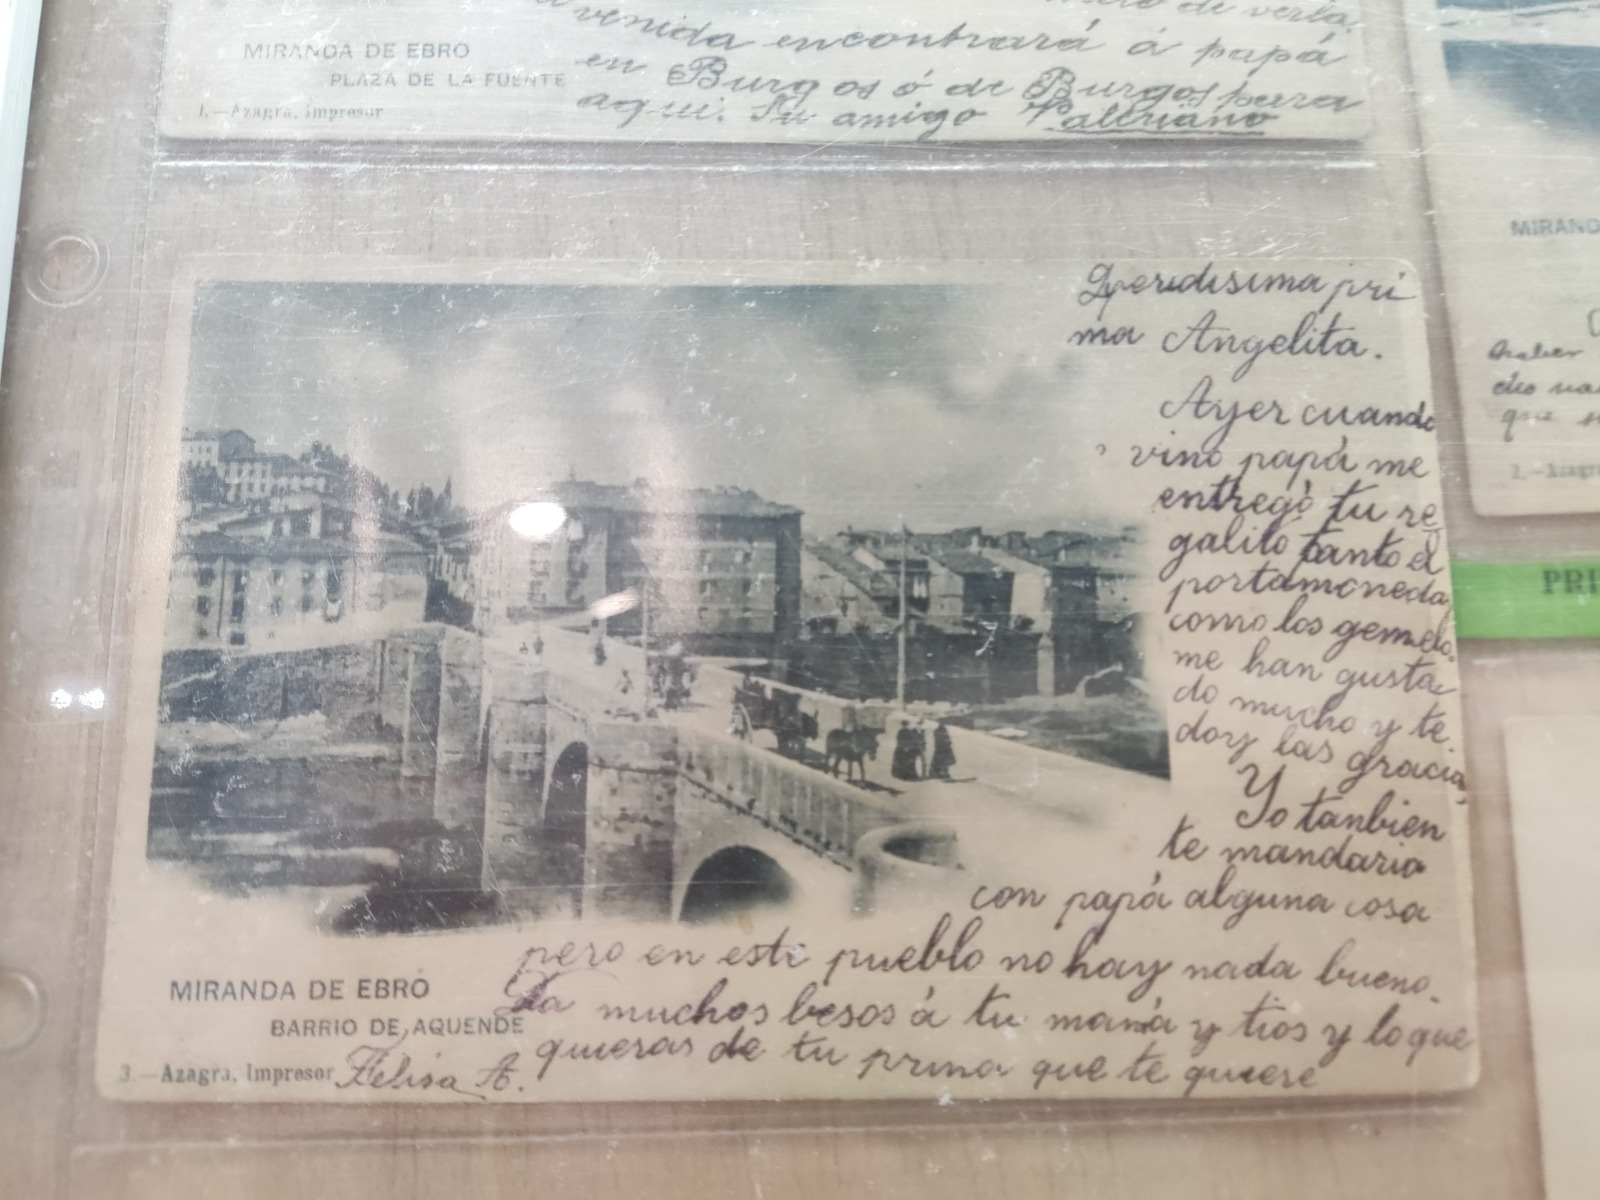 de verla.
venida encontrará á papá
en Burgos ó de Burgos para
aqui. Su amigo Valeriano
MIRANDA DE EBRO
PLAZA DE LA FUENTE
1.—Azagra, Impresor
Queridisima pri
ma Angelita.
Ayer cuando
vino papá me
entregó tu re
galito tanto el
portamoneda
como los gemelo.
me han gusta
do mucho y te
doy las gracias,
Yo tanbien
te mandaria
con papá alguna cosa
pero en este pueblo no hay nada bueno.
Da muchos besos á tu mamá y tios y lo que
quieras de tu prima que te quiere
Felisa A.
MIRANDA DE EBRO
BARRIO DE AQUENDE
3.—Azagra, Impresor
MIRAND
haber
que
2.—Azagra
PRI